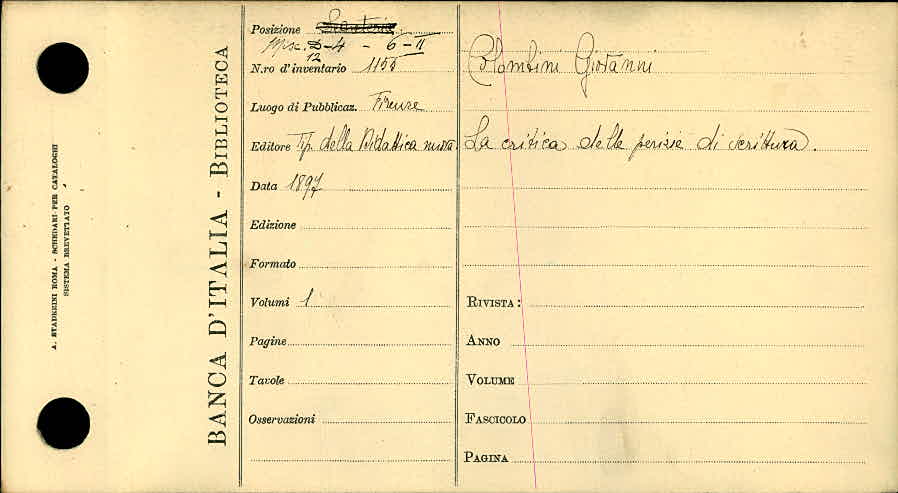 A. STADERINI ROMA - SCHEDARI PER CATALOGHI
SISTEMA BREVETTATO
BANCA D'ITALIA - BIBLIOTECA
Posizione
Misc. D-4 - 6-II
12
N.ro d'inventario 1155
Luogo di Pubblicaz. Firenze
Editore Tip. della Didattica nuova
Data 1897
Edizione
Formato
Volumi 1
Pagine
Tavole
Osservazioni
Colombini Giovanni
La critica delle perizie di scrittura.
RIVISTA:
ANNO
VOLUME
FASCICOLO
PAGINA